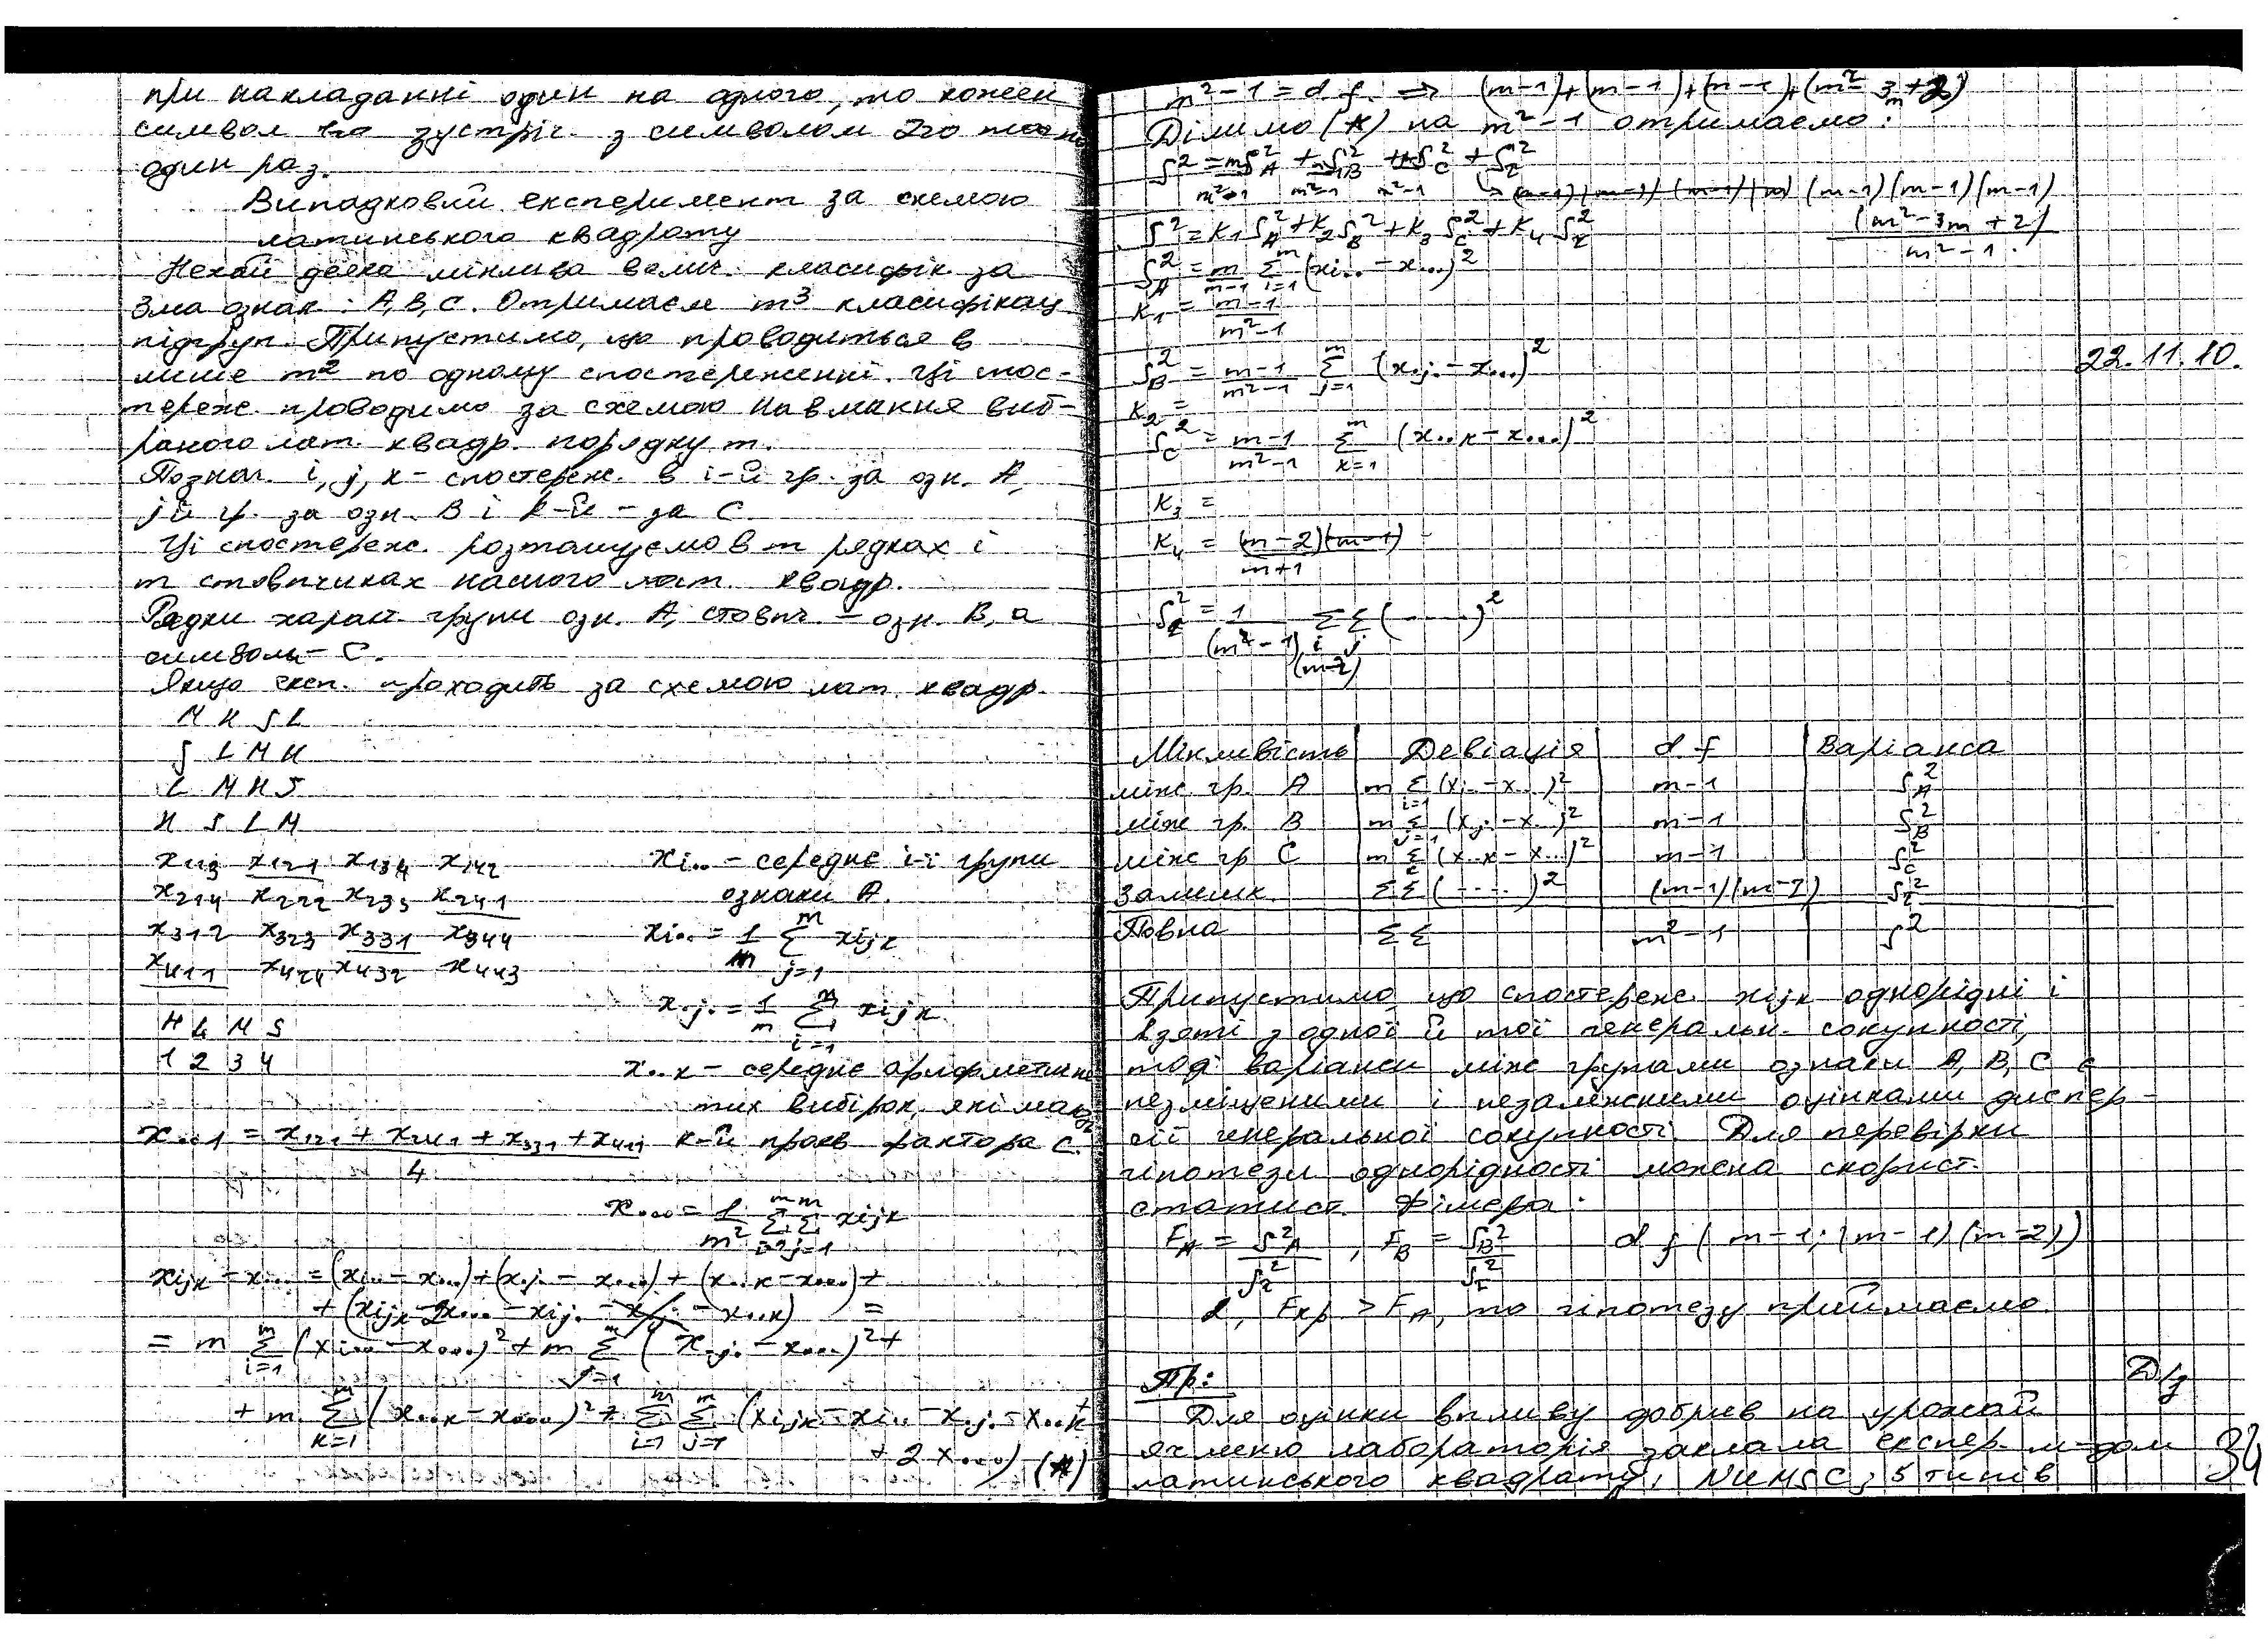 при накладанні один на одного, то кожен
символ 1го зустріч. з символом 2го
один раз.
Випадковий експеримент за схемою
латинського квадрату
Нехай деяка мінлива велич. класифік. за
3ма ознак: A, B, C. Отримаєм m³ класифікац
підгруп. Припустимо, що проводиться в
лише m² по одному спостереженні. Ці спос-
тереж. проводимо за схемою навмання виб-
раного лат. квадр. порядку m.
Познач. i, j, к - спостереж. в i-й гр. за озн. A,
jй гр. за озн. B і k-й - за C
Ці спостереж. розташуємо в m рядках і
m стовпчиках нашого лат. квадр.
Рядки харак. групи озн. A, стовпч. - озн. B, а
символи - C.
Якщо експ. проходить за схемою лат. квадр.
M K S L
S L M K
L M K S
K S L M
x₁₁₃ x₁₂₁ x₁₃₄ x₁₄₂ xi.. - середнє i-ї групи
x₂₁₄ x₂₂₂ x₂₃₃ x₂₄₁ ознаки A.
x₃₁₂ x₃₂₃ x₃₃₁ x₃₄₄ xi.. = 1/m Σ_{j=1}^{m} xijk
x₄₁₁ x₄₂₄ x₄₃₂ x₄₄₃
x.j. = 1/m Σ_{i=1}^{m} xijk
K L M S
1 2 3 4
x..к - середнє арифметичне
тих вибірок, які мають
x..1 = (x₁₂₁ + x₂₄₁ + x₃₃₁ + x₄₁₁)/4 к-й прояв фактора C.
x... = 1/m² Σ_{i=1}^{m} Σ_{j=1}^{m} xijk
xijk - x... = (xi.. - x...) + (x.j. - x...) + (x..к - x...) +
+ (xijk - 2x... - xij. - - x..к) =
= m Σ_{i=1}^{m} (xi.. - x...)² + m Σ_{j=1}^{m} (x.j. - x...)² +
+ m Σ_{к=1}^{m} (x..к - x...)² + Σ_{i=1}^{m} Σ_{j=1}^{m} (xijk - xi.. - x.j. - x..к +
+ 2x...) (*)
m² - 1 = d f. ⇒ (m-1)+(m-1)+(m-1)+(m² - 3m + 2)
Ділимо (*) на m² - 1 отримаємо:
S² = S²A/(m²-1) + S²B/(m²-1) + S²C/(m²-1) + S²z
(m-1)(m-1)(m-1)
(m² - 3m + 2)/(m² - 1).
S² = K₁S²A + K₂S²B + K₃S²C + K₄S²z
S²A = m/(m-1) Σ_{i=1}^{m} (xi.. - x...)²
K₁ = (m-1)/(m²-1)
22.11.10.
S²B = (m-1)/(m²-1) Σ_{j=1}^{m} (x.j. - x...)²
K₂ =
S²C = (m-1)/(m²-1) Σ_{к=1}^{m} (x..к - x...)²
K₃ =
K₄ = (m-2)(m-1)/(m+1)
S²z = 1/((m²-1)(m-2)) Σ_i Σ_j (.....)²
Мінливість | Девіація | d f | Варіанса
між гр. A | m Σ_{i=1} (xi.. - x...)² | m-1 | S²A
між гр. B | m Σ_{j=1} (x.j. - x...)² | m-1 | S²B
між гр C | m Σ (x..к - x...)² | m-1 | S²C
Залишк. | ΣΣ(.....)² | (m-1)(m-2) | S²z
Повна | ΣΣ | m²-1 | S²
Припустимо, що спостереж. xijк однорідні і
взяті з одної й тої генеральн. сокупності,
тоді варіанси між групами ознаки A, B, C є
незміщеними і незалежними оцінками диспер-
сії генеральної сокупності. Для перевірки
гіпотези однорідності можна скорист.
статист. Фішера:
F_A = S²A/S²z, F_B = S²B/S²z d f (m-1; (m-1)(m-2))
α, Fкр > F_A, то гіпотезу приймаємо.
Пр: Д/з
Для оцінки впливу добрив на урожай
ячменю лабораторія заклала експер. м-дом
латинського квадрату, NKMSC; 5 типів
34